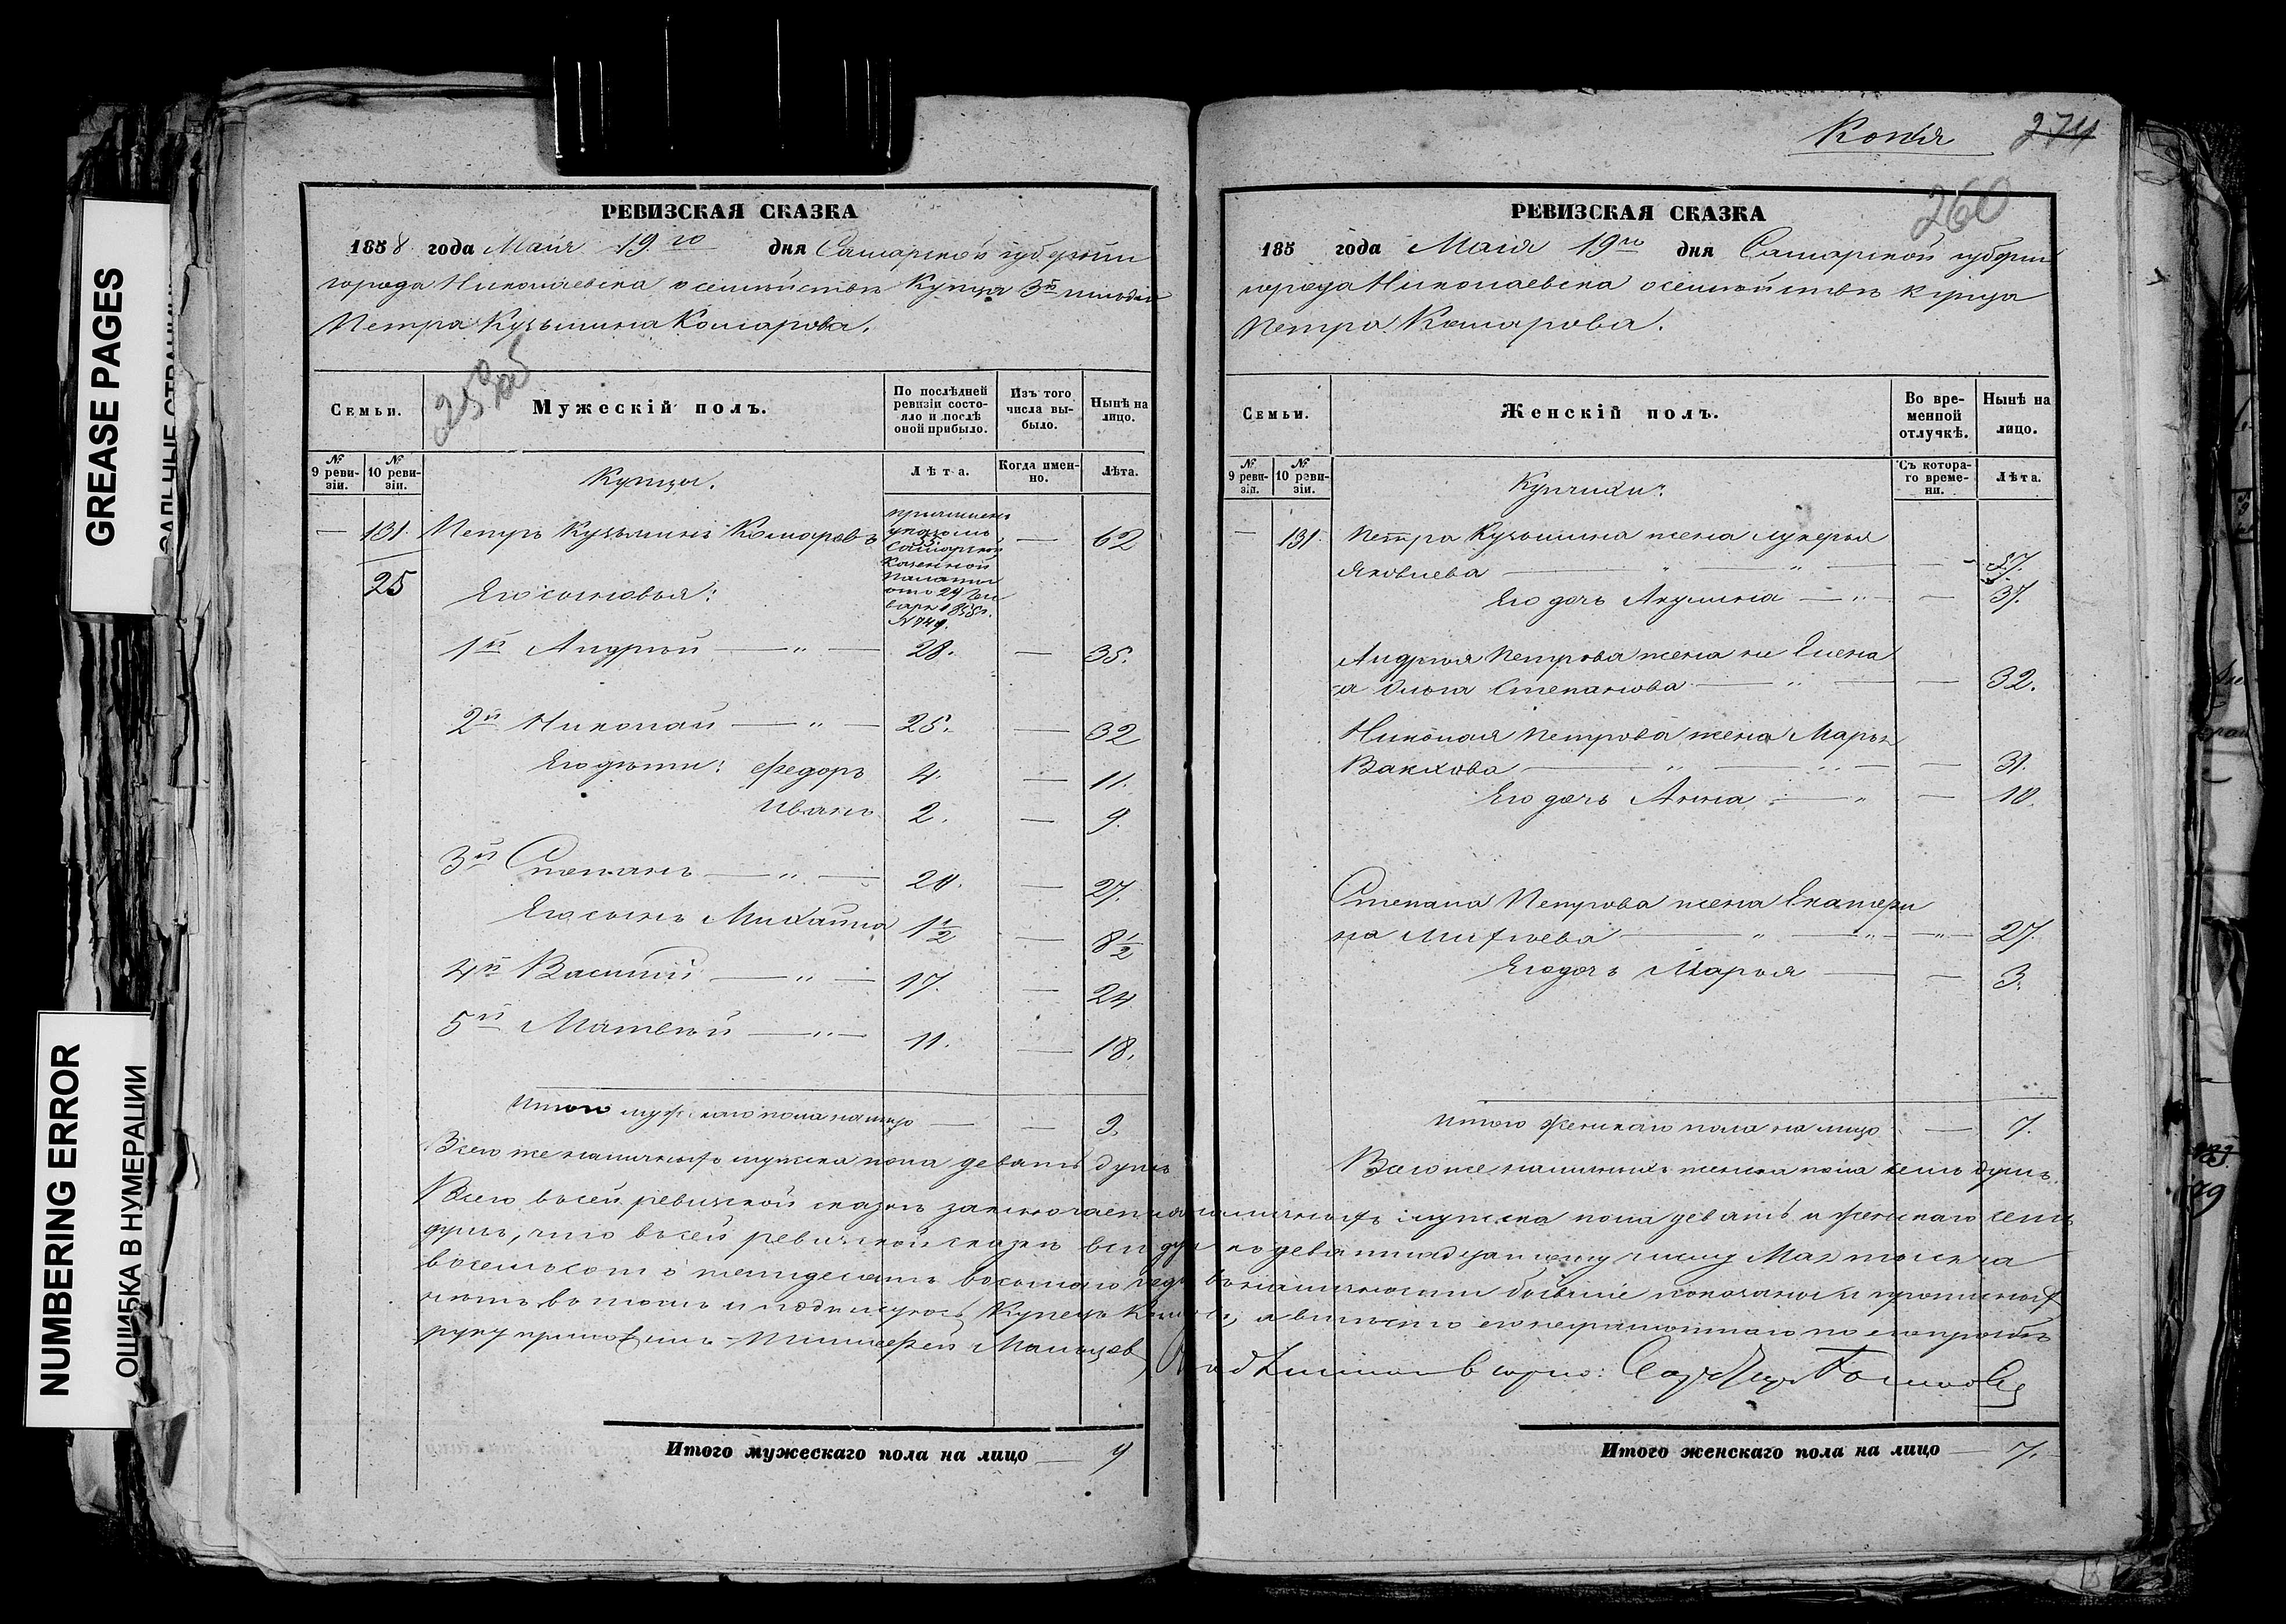 GREASE PAGES
NUMBERING ERROR
ОШИБКА В НУМЕРАЦИИ
РЕВИЗСКАЯ СКАЗКА
1858 года Маія 19го дня Самарской губерніи
города Николаевска о семействѣ Купца 3й гильдіи
Петра Кузьмина Комарова.
Семьи.
Мужескій полъ.
По послѣдней ревизіи состояло и послѣ оной прибыло.
Изъ того числа выбыло.
Нынѣ на лицо.
№ 9 ревизіи.
№ 10 ревизіи.
Купцы.
Лѣта.
Когда именно.
Лѣта.
— 131. Петръ Кузьминъ Комаровъ — 62
указомъ
Самарской
Казенной
Палаты
отъ 24 Ген
варя 1855г.
№749.
25 Его сыновья:
1й Андрей — " — 28. — 35.
2й Николай — " — 25. — 32
Его дѣти: Федоръ 4. — 11.
Иванъ 2. — 9.
3й Степанъ — " — 20. — 27.
Его сынъ Михаила 1½ — 8½
4й Василій — " — 17. — 24.
5й Матвѣй — " — 11. — 18.
Итого мужскаго пола на лицо — — 9.
Всего же наличныхъ мужска пола девять душъ
Итого мужескаго пола на лицо — 9
Копія 274
260
РЕВИЗСКАЯ СКАЗКА
185 года Маія 19го дня Самарской губерніи
города Николаевска о семействѣ купца
Петра Комарова.
Семьи.
Женскій полъ.
Во временной отлучкѣ.
Нынѣ на лицо.
№ 9 ревизіи.
№ 10 ревизіи.
Купчихи:
Съ котораго времени.
Лѣта.
— 131. Петра Кузьмина жена Лукерья
Яковлева — " — " — — 57.
Его дочь Акулина — " — — 37.
Андрея Петрова жена не Елена
а Ольга Степанова — " — — 32.
Николая Петрова жена Марья
Вакхова — " — " — — 31.
Его дочь Анна — " — 10.
Степана Петрова жена Екатери
на — " — " — " — 27.
Его дочь Марья — — 3.
Итого женскаго пола на лицо — 7.
Всего же наличныхъ женска пола семь душъ.
Всего въ сей ревизской сказкѣ заключается наличныхъ мужска пола девять и женскаго семь
душъ, что въ сей ревизской сказкѣ всѣ души по девятнадцатому число Маія тысяча
восемьсотъ пятидесятъ восьмаго года въ наличности бывшіе показаны и прописныхъ
нѣтъ въ томъ и подписуюсь Купецъ Комаровъ, а вмѣсто его неграмотнаго по его прозьбѣ
руку приложилъ
Итого женскаго пола на лицо — 7.